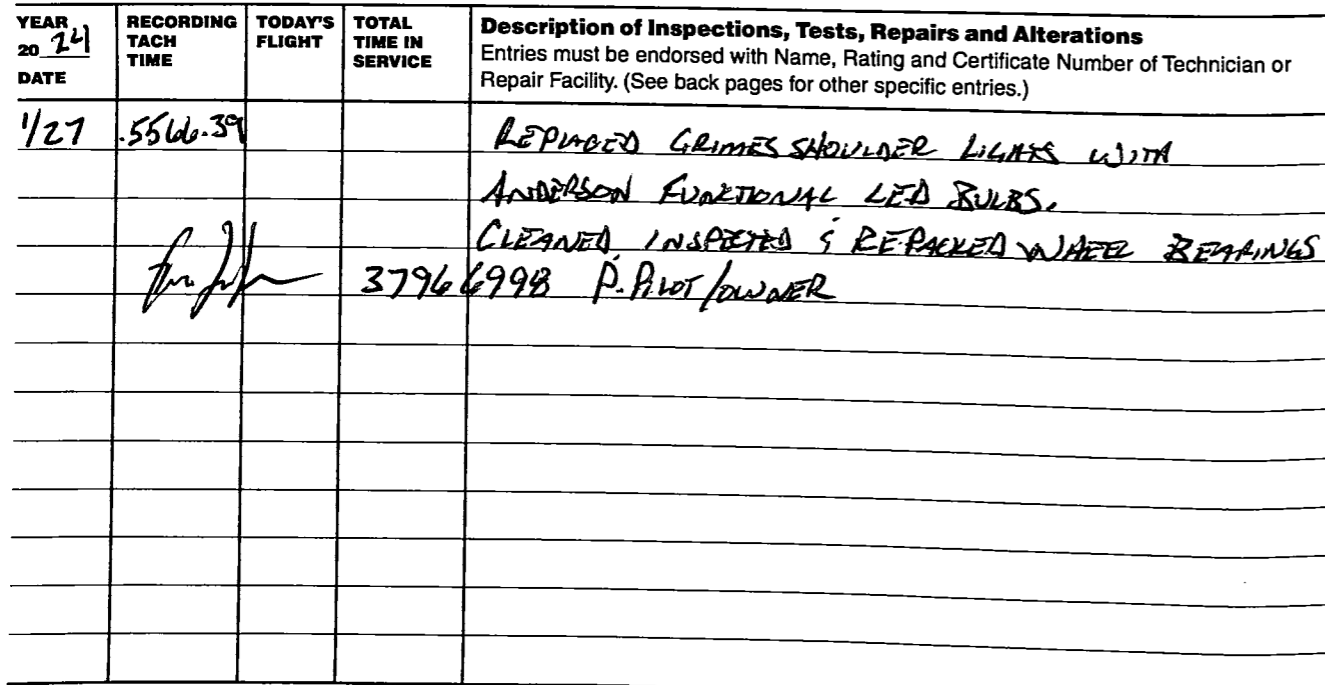 YEAR 20 24 DATE
RECORDING TACH TIME
TODAY'S FLIGHT
TOTAL TIME IN SERVICE
Description of Inspections, Tests, Repairs and Alterations
Entries must be endorsed with Name, Rating and Certificate Number of Technician or
Repair Facility. (See back pages for other specific entries.)
1/27 5566.39 REPLACED GRIMES SHOULDER LIGHTS WITH
ANDERSON FUNCTIONAL LED BULBS.
CLEANED, INSPECTED & REPACKED WHEEL BEARINGS
37966998 P. PILOT/OWNER